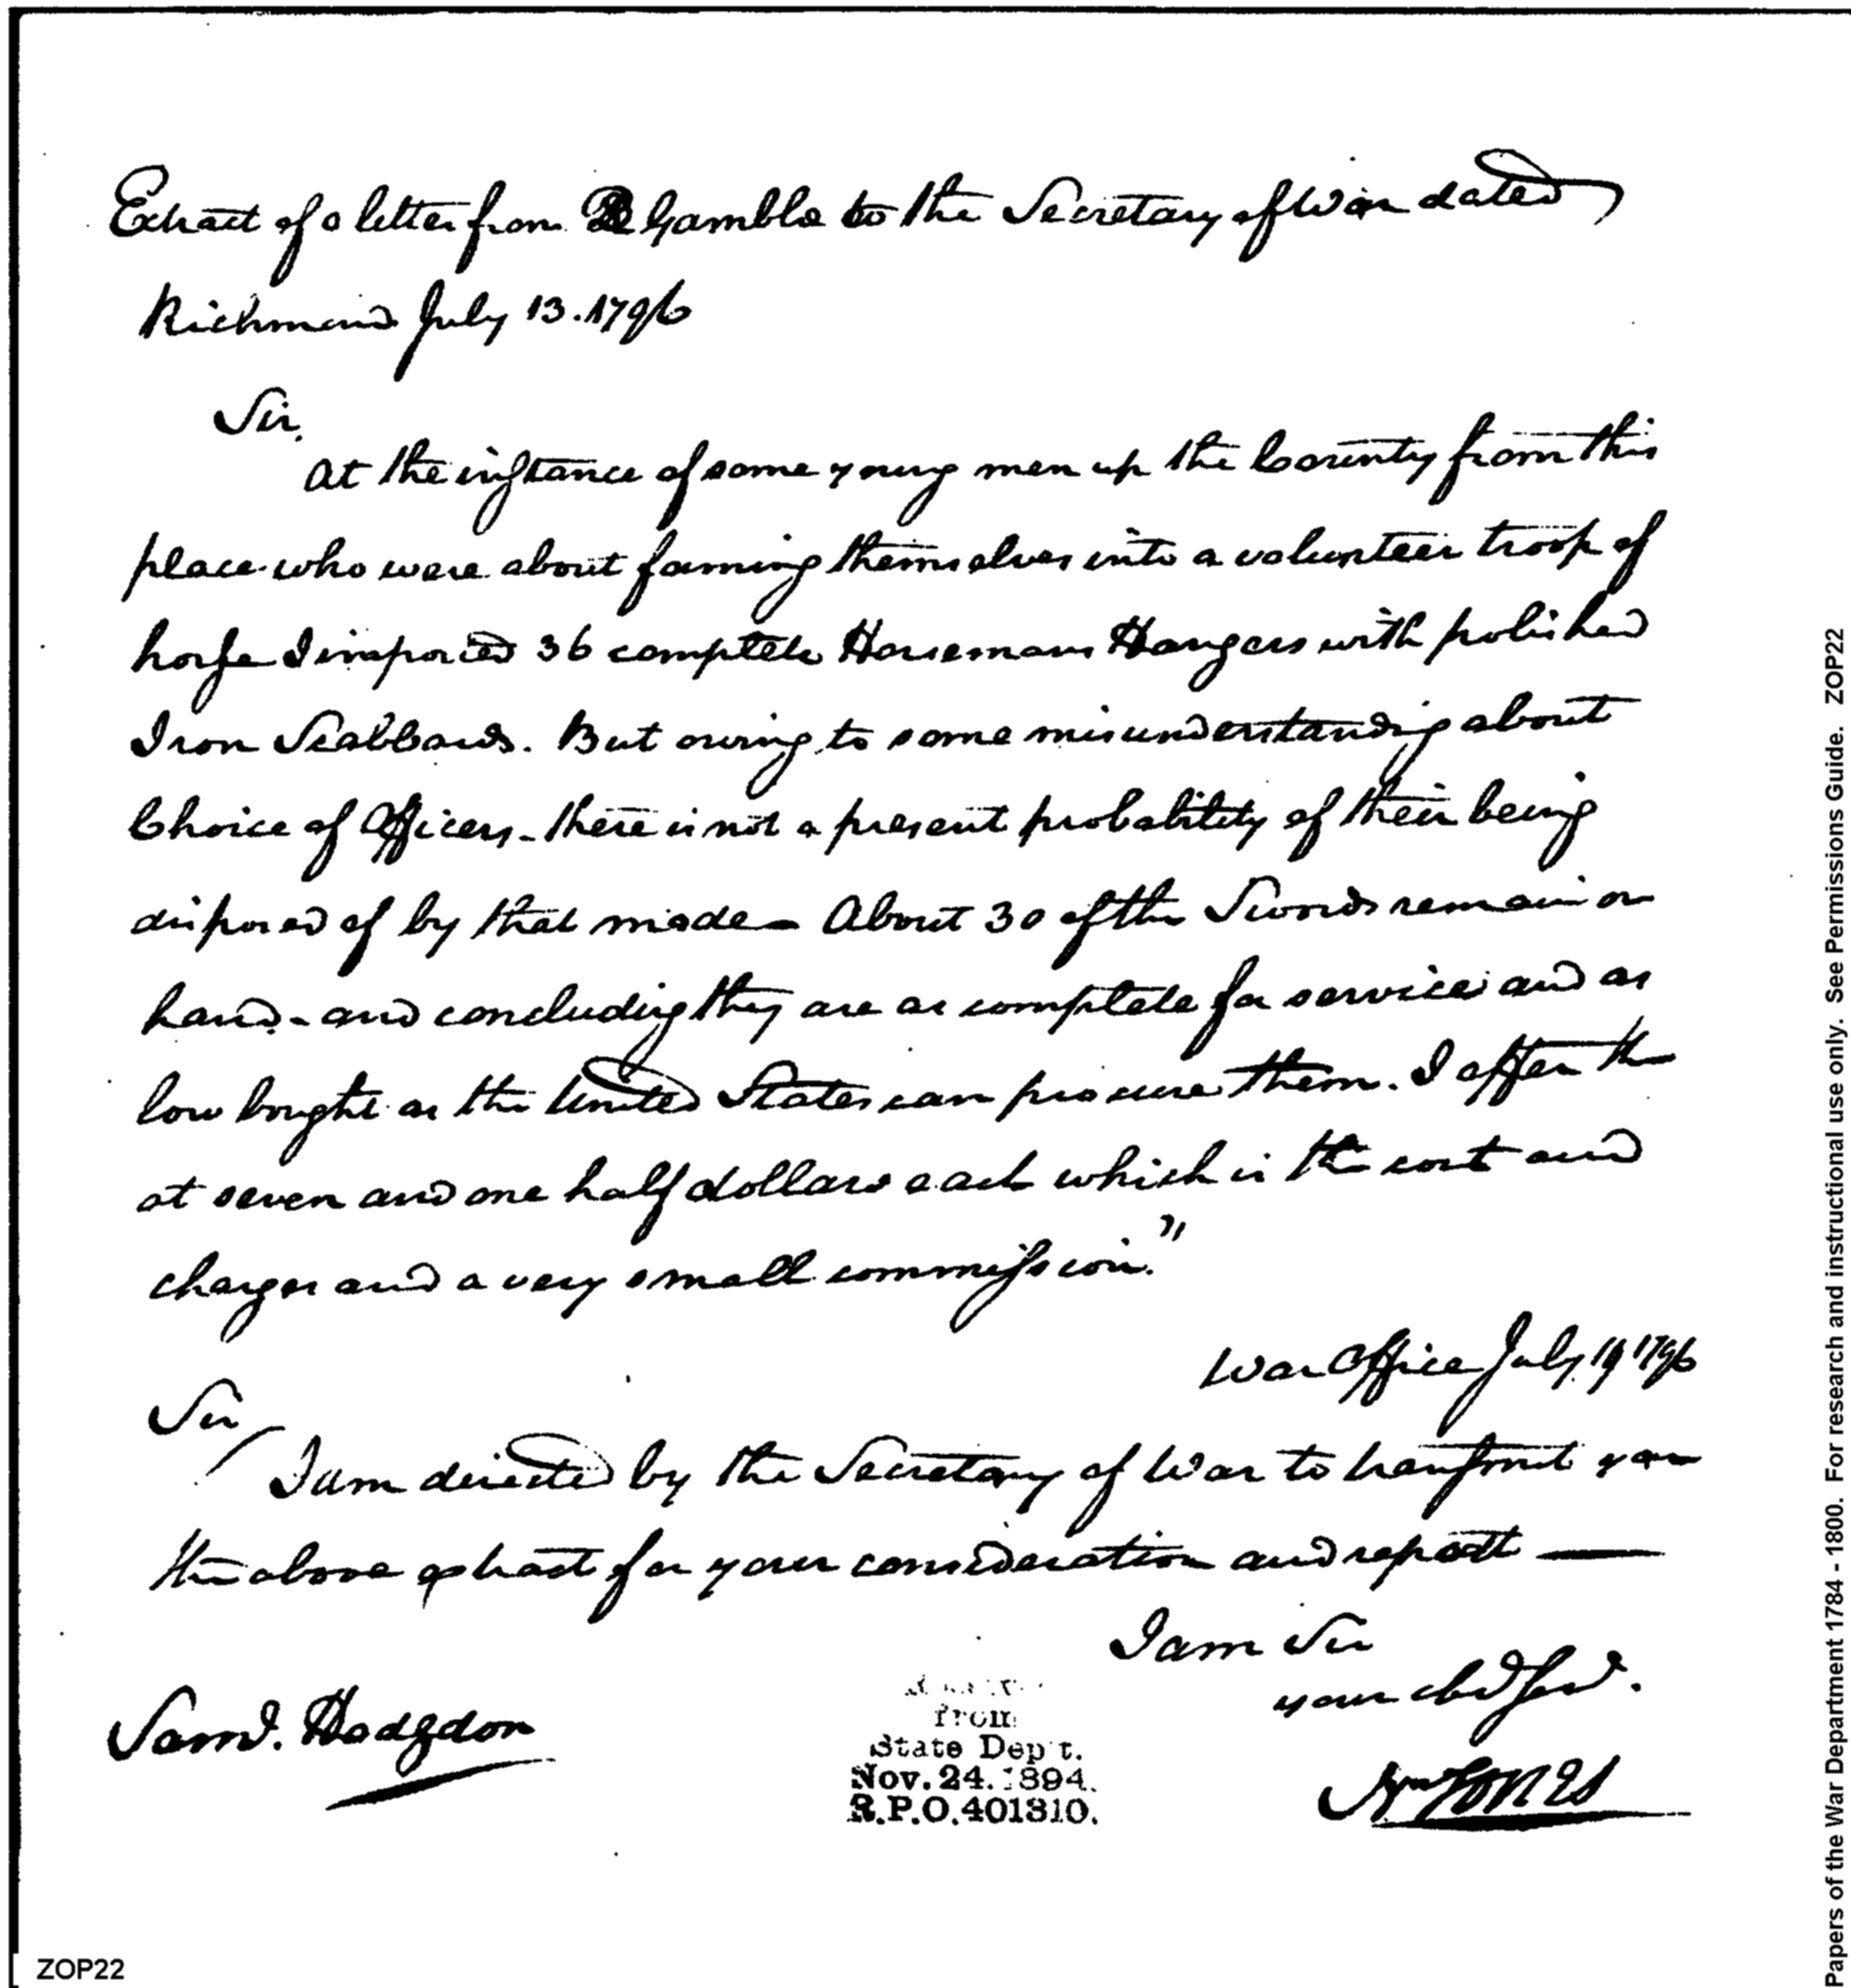 Extract of a letter from R Gamble to the Secretary of War dated
Richmond July 13. 1796
Sir.
At the instance of some young men up the County from this
place who were about forming themselves into a volunteer troop of
horse I imported 36 complete Horsemans Hangers with polished
Iron Scabbards. But owing to some misunderstanding about
Choice of Officers - there is not a present probability of their being
disposed of by that mode - About 30 of the Swords remain on
hand - and concluding they are as complete for service and as
low bought as the United States can procure them. I offer the
at seven and one half dollars each which is the cost and
charges and a very small commission."
War Office July 19 1796
Sir
I am directed by the Secretary of War to transmit you
the above extract for your consideration and report —
I am Sir
your obd Serv.
Saml. Hodgdon
Jones
from
State Dep't.
Nov. 24. 1894.
R.P.O. 401310.
ZOP22
Papers of the War Department 1784 - 1800. For research and instructional use only. See Permissions Guide. ZOP22